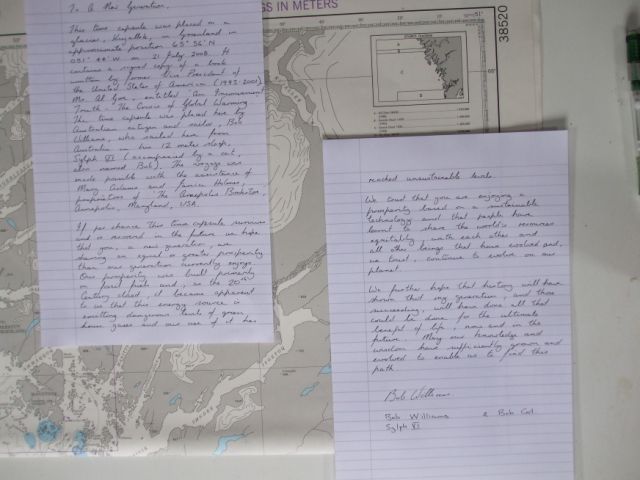 To A New Generation.
This time capsule was placed on a
glacier, Kuyallok, in Greenland in
approximate position 65° 56' N
051° 44' W on 21 July 2008. It
contains a signed copy of a book
written by former Vice President of
the United States of America (1993-2001)
Mr. Al Gore, entitled "An Inconvenient
Truth - The Crisis of Global Warming
The time capsule was placed here by
Australian citizen and sailor, Bob
Williams, who sailed here from
Australia in his 12 meter sloop,
Sylph VI (accompanied by a cat,
also named Bob). The voyage was
made possible with the assistance of
Mary Adams and Janice Holmes,
proprietors of "The Annapolis Bookstore,
Annapolis, Maryland, USA.
If per chance this time capsule survives
and is recovered in the future we hope
that you, a new generation, are
sharing an equal or greater prosperity
than our generation currently enjoys.
Our prosperity was built primarily
on fossil fuels and, as the 20th
Century closed, it became apparent
to us that this energy source is
emitting dangerous levels of green
house gases and our use of it has
GS IN METERS
38520
reached unsustainable levels.
We trust that you are enjoying a
prosperity based on a sustainable
technology and that people have
learnt to share the world's resources
equitably, with each other and
all other beings that have evolved and,
we trust, continue to evolve on our
planet.
We further hope that history will have
shown that my generation, and those
succeeding, will have done all that
could be done for the ultimate
benefit of life, now and in the
future. May our knowledge and
wisdom have sufficiently grown and
evolved to enable us to find this
path.
Bob Williams
Bob Williams & Bob Cat
Sylph VI